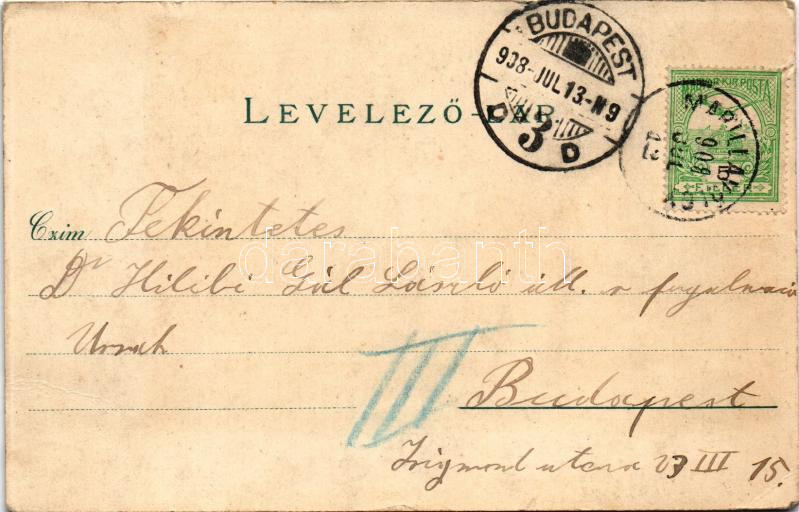 BUDAPEST
908-JUL 13-N9
D 3 D
LEVELEZŐ-LAP
Czim Tekintetes
Dr Hilibi Gál László áll. r fogalmazó
Urnak
III
Budapest
Zsigmond utcza 23 III 15.
darabanth